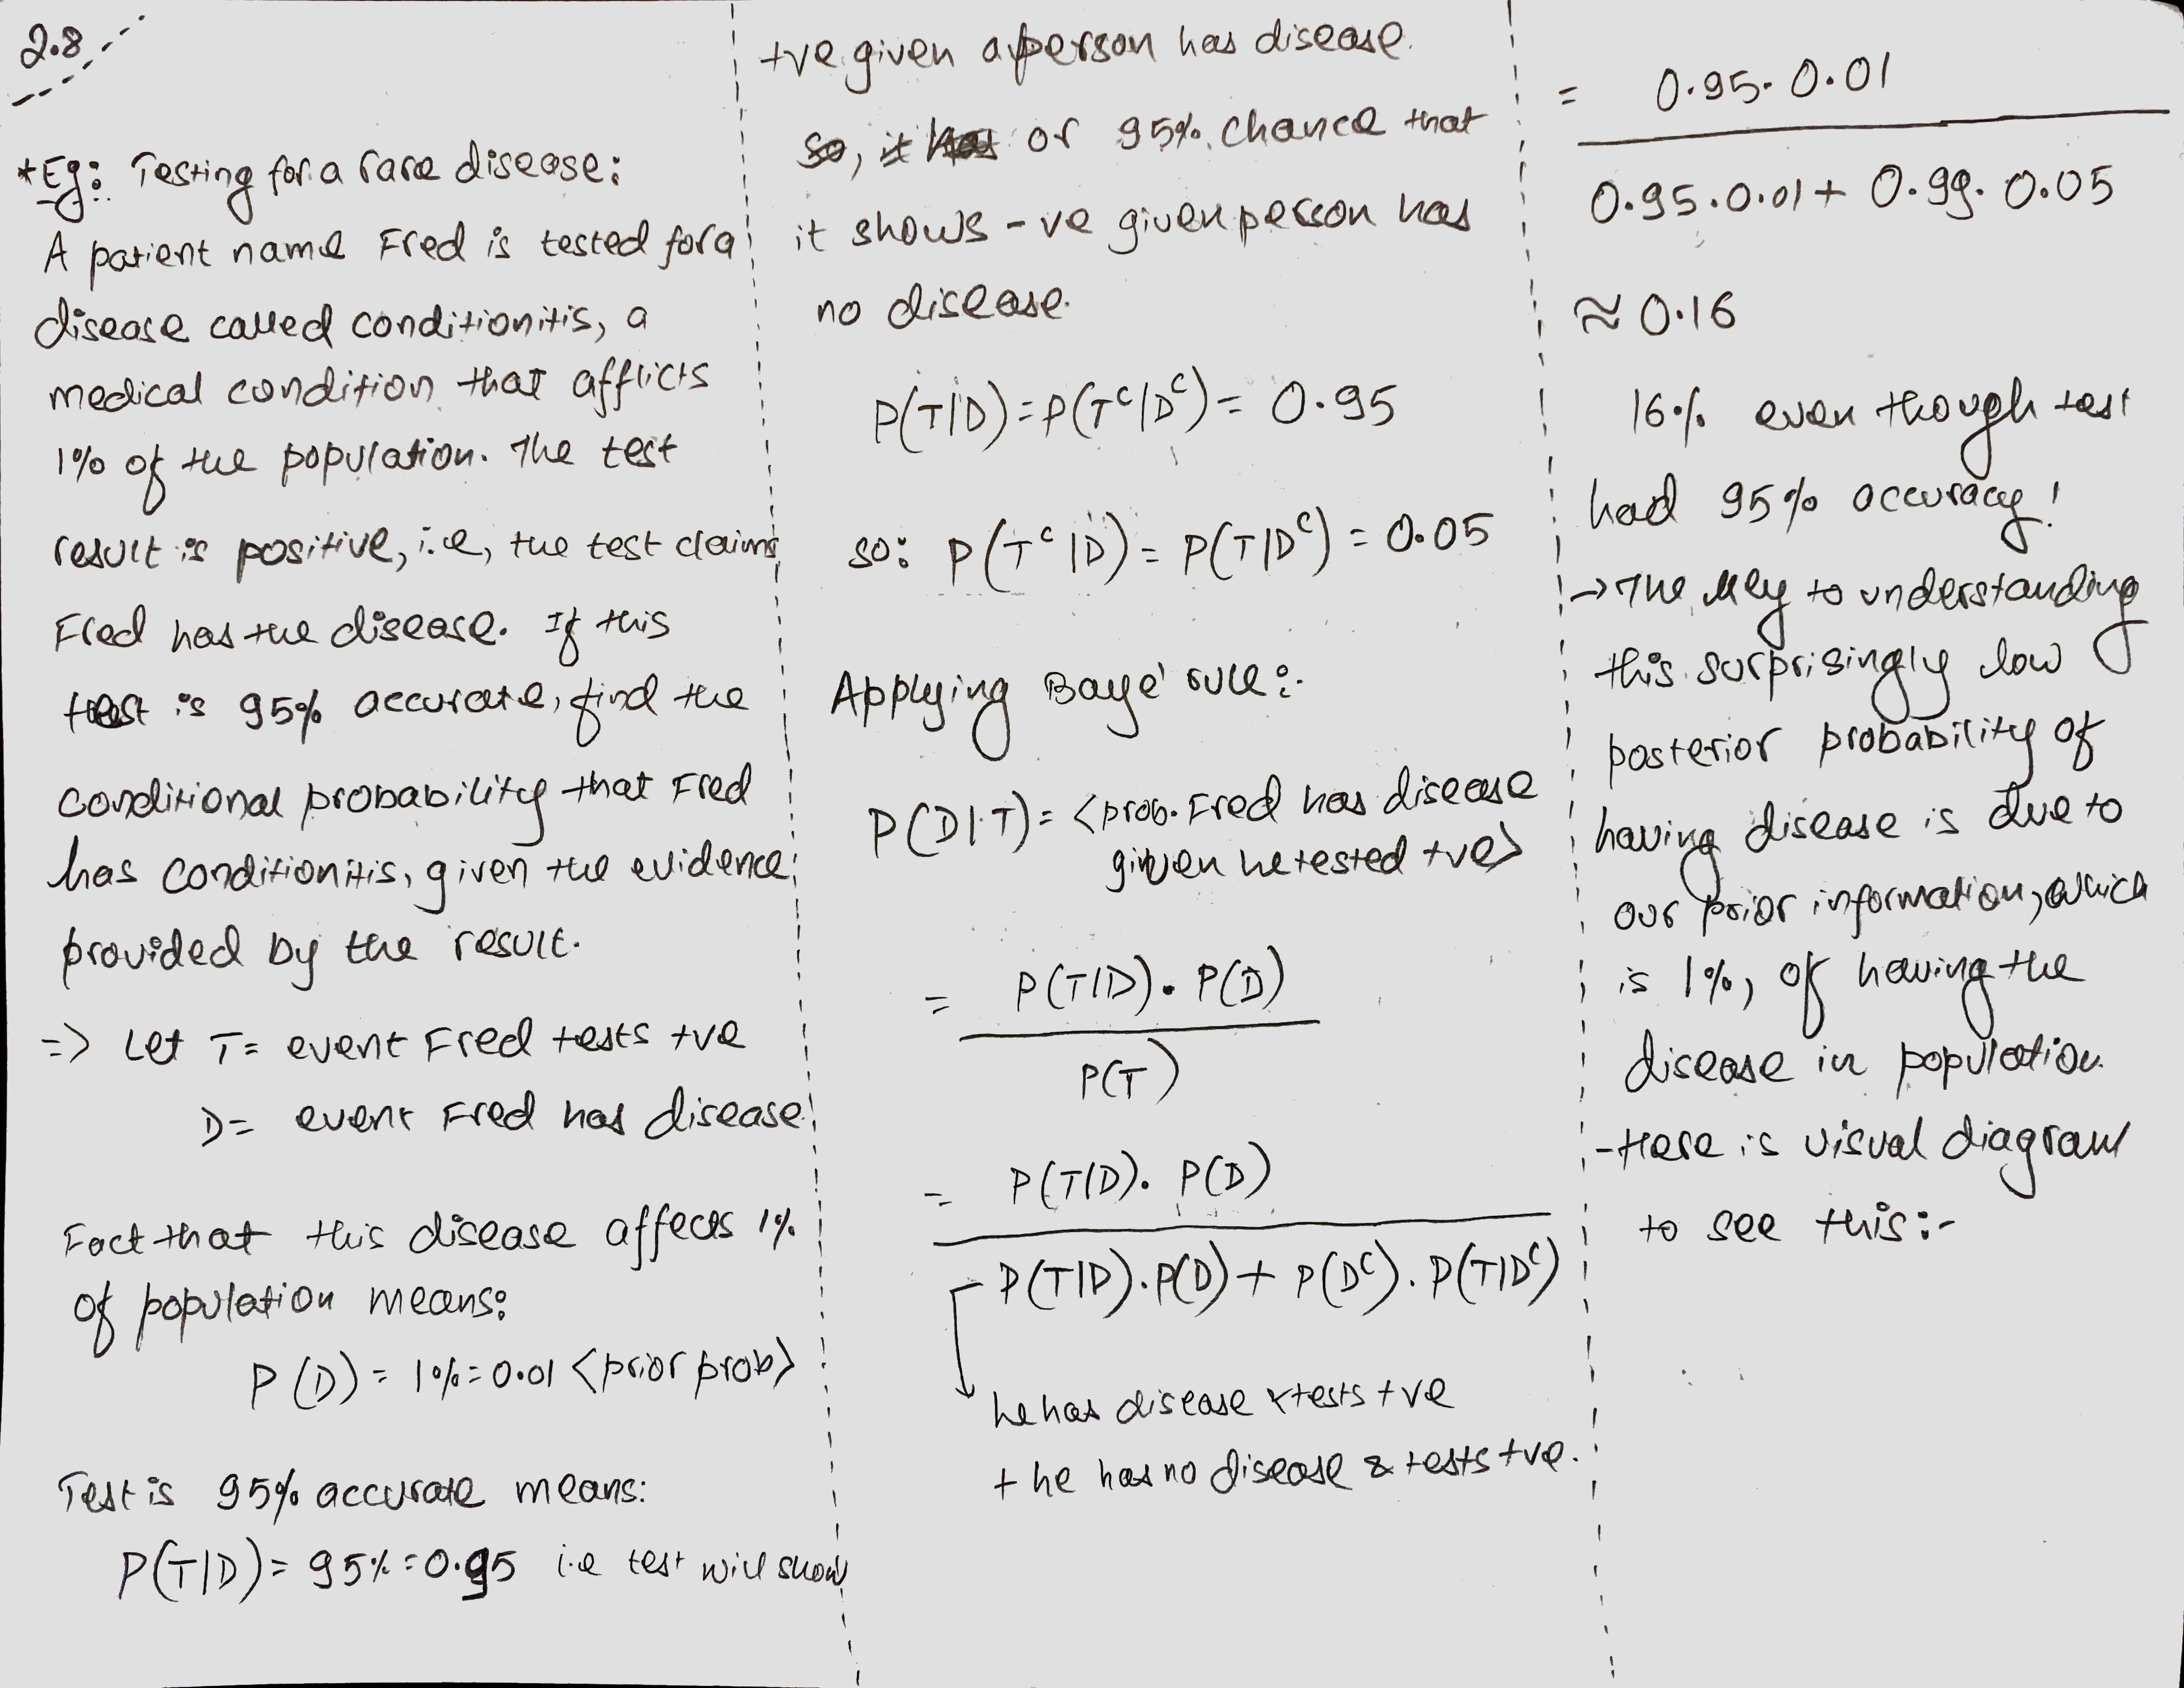 2.8
*Eg: Testing for a rare disease:
A patient name Fred is tested for a
disease called conditionitis, a
medical condition that afflicts
1% of the population. The test
result is positive, i.e, the test claims
Fred has the disease. If this
test is 95% accurate, find the
conditional probability that Fred
has conditionitis, given the evidence
provided by the result.
=> Let T= event Fred tests +ve
D= event Fred has disease
Fact that this disease affects 1%
of population means:
P(D) = 1% = 0.01 <prior prob>
Test is 95% accurate means:
P(T|D) = 95% = 0.95 i.e test will show
+ve given a person has disease.
so, it has or 95% chance that
it shows -ve given person has
no disease.
P(T|D) = P(Tᶜ|Dᶜ) = 0.95
so: P(Tᶜ|D) = P(T|Dᶜ) = 0.05
Applying Baye' rule:-
P(D|T) = <prob. Fred has disease
given he tested +ve>
= P(T|D). P(D)
P(T)
= P(T|D). P(D)
P(T|D).P(D) + P(Dᶜ). P(T|Dᶜ)
he has disease & tests +ve
+ he has no disease & tests +ve.
= 0.95. 0.01
0.95.0.01 + 0.99. 0.05
≈ 0.16
16% even though test
had 95% accuracy!
→ The key to understanding
this surprisingly low
posterior probability of
having disease is due to
our prior information, which
is 1%, of having the
disease in population.
- Here is visual diagram
to see this:-